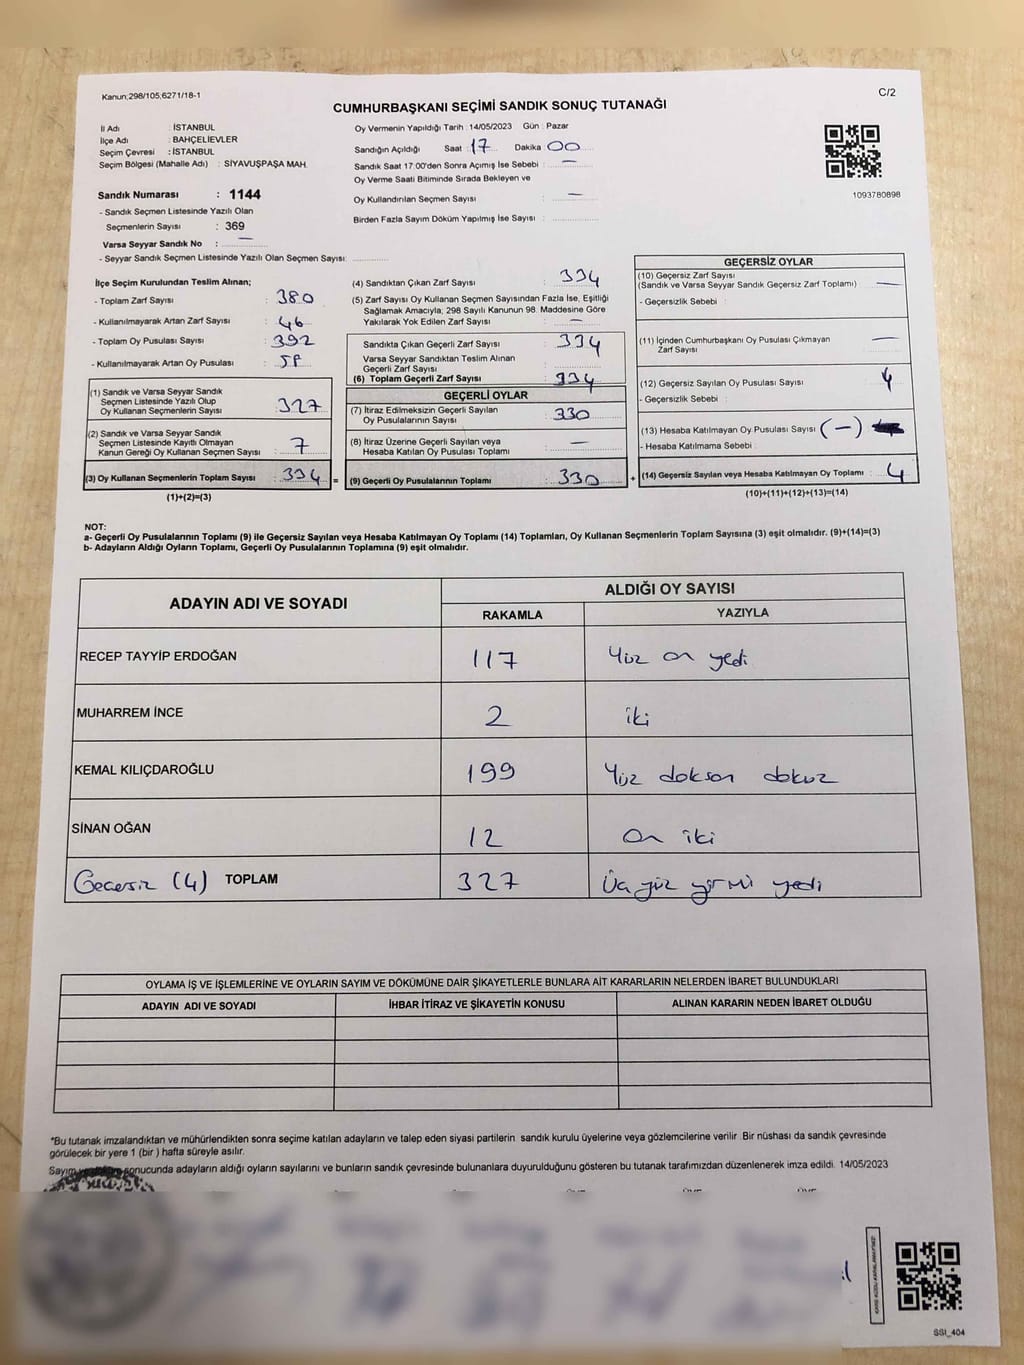 Kanun;298/105;6271/18-1
C/2
CUMHURBAŞKANI SEÇİMİ SANDIK SONUÇ TUTANAĞI
İl Adı : İSTANBUL
İlçe Adı : BAHÇELİEVLER
Seçim Çevresi : İSTANBUL
Seçim Bölgesi (Mahalle Adı) : SİYAVUŞPAŞA MAH.
Sandık Numarası : 1144
- Sandık Seçmen Listesinde Yazılı Olan
Seçmenlerin Sayısı : 369
Varsa Seyyar Sandık No : —
- Seyyar Sandık Seçmen Listesinde Yazılı Olan Seçmen Sayısı:
Oy Vermenin Yapıldığı Tarih : 14/05/2023 Gün : Pazar
Sandığın Açıldığı Saat : 17 Dakika : 00
Sandık Saat 17:00'den Sonra Açımış İse Sebebi : —
Oy Verme Saati Bitiminde Sırada Bekleyen ve
Oy Kullandırılan Seçmen Sayısı : —
Birden Fazla Sayım Döküm Yapılmış İse Sayısı :
1093780898
İlçe Seçim Kurulundan Teslim Alınan;
- Toplam Zarf Sayısı : 380
- Kullanılmayarak Artan Zarf Sayısı : 46
- Toplam Oy Pusulası Sayısı : 392
- Kullanılmayarak Artan Oy Pusulası :
(1) Sandık ve Varsa Seyyar Sandık
Seçmen Listesinde Yazılı Olup
Oy Kullanan Seçmenlerin Sayısı : 327
(2) Sandık ve Varsa Seyyar Sandık
Seçmen Listesinde Kayıtlı Olmayan
Kanun Gereği Oy Kullanan Seçmen Sayısı : 7
(3) Oy Kullanan Seçmenlerin Toplam Sayısı : 334 =
(1)+(2)=(3)
(4) Sandıktan Çıkan Zarf Sayısı : 334
(5) Zarf Sayısı Oy Kullanan Seçmen Sayısından Fazla İse, Eşitliği
Sağlamak Amacıyla; 298 Sayılı Kanunun 98. Maddesine Göre
Yakılarak Yok Edilen Zarf Sayısı : —
Sandıkta Çıkan Geçerli Zarf Sayısı : 334
Varsa Seyyar Sandıktan Teslim Alınan
Geçerli Zarf Sayısı :
(6) Toplam Geçerli Zarf Sayısı : 334
GEÇERLİ OYLAR
(7) İtiraz Edilmeksizin Geçerli Sayılan
Oy Pusulasının Sayısı : 330
(8) İtiraz Üzerine Geçerli Sayılan veya
Hesaba Katılan Oy Pusulası Toplamı : —
(9) Geçerli Oy Pusulalarının Toplamı : 330 +
GEÇERSİZ OYLAR
(10) Geçersiz Zarf Sayısı
(Sandık ve Varsa Seyyar Sandık Geçersiz Zarf Toplamı) : —
- Geçersizlik Sebebi :
(11) İçinden Cumhurbaşkanı Oy Pusulası Çıkmayan
Zarf Sayısı : —
(12) Geçersiz Sayılan Oy Pusulası Sayısı : 4
- Geçersizlik Sebebi :
(13) Hesaba Katılmayan Oy Pusulası Sayısı : (-)
- Hesaba Katılmama Sebebi :
(14) Geçersiz Sayılan veya Hesaba Katılmayan Oy Toplamı : 4
(10)+(11)+(12)+(13)=(14)
NOT:
a- Geçerli Oy Pusulalarının Toplamı (9) ile Geçersiz Sayılan veya Hesaba Katılmayan Oy Toplamı (14) Toplamları, Oy Kullanan Seçmenlerin Toplam Sayısına (3) eşit olmalıdır. (9)+(14)=(3)
b- Adayların Aldığı Oyların Toplamı, Geçerli Oy Pusulalarının Toplamına (9) eşit olmalıdır.
ADAYIN ADI VE SOYADI
ALDIĞI OY SAYISI
RAKAMLA YAZIYLA
RECEP TAYYİP ERDOĞAN 117 Yüz on yedi
MUHARREM İNCE 2 iki
KEMAL KILIÇDAROĞLU 199 Yüz doksan dokuz
SİNAN OĞAN 12 on iki
Geçersiz (4) TOPLAM 327 Üç yüz yirmi yedi
OYLAMA İŞ VE İŞLEMLERİNE VE OYLARIN SAYIM VE DÖKÜMÜNE DAİR ŞİKAYETLERLE BUNLARA AİT KARARLARIN NELERDEN İBARET BULUNDUKLARI
ADAYIN ADI VE SOYADI İHBAR İTİRAZ VE ŞİKAYETİN KONUSU ALINAN KARARIN NEDEN İBARET OLDUĞU
*Bu tutanak imzalandıktan ve mühürlendikten sonra seçime katılan adayların ve talep eden siyasi partilerin sandık kurulu üyelerine veya gözlemcilerine verilir. Bir nüshası da sandık çevresinde
görülecek bir yere 1 (bir ) hafta süreyle asılır.
Sayım sonucunda adayların aldığı oyların sayılarını ve bunların sandık çevresinde bulunanlara duyurulduğunu gösteren bu tutanak tarafımızdan düzenlenerek imza edildi. 14/05/2023
SSI_404